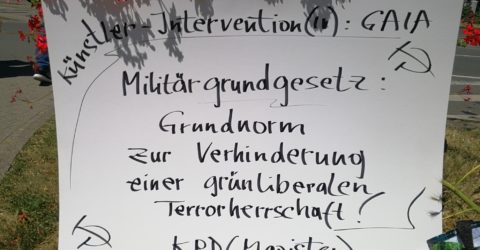 Künstler-Intervention(11): GAIA
Militärgrundgesetz:
Grundnorm
zur Verhinderung
einer grünliberalen
Terrorherrschaft!